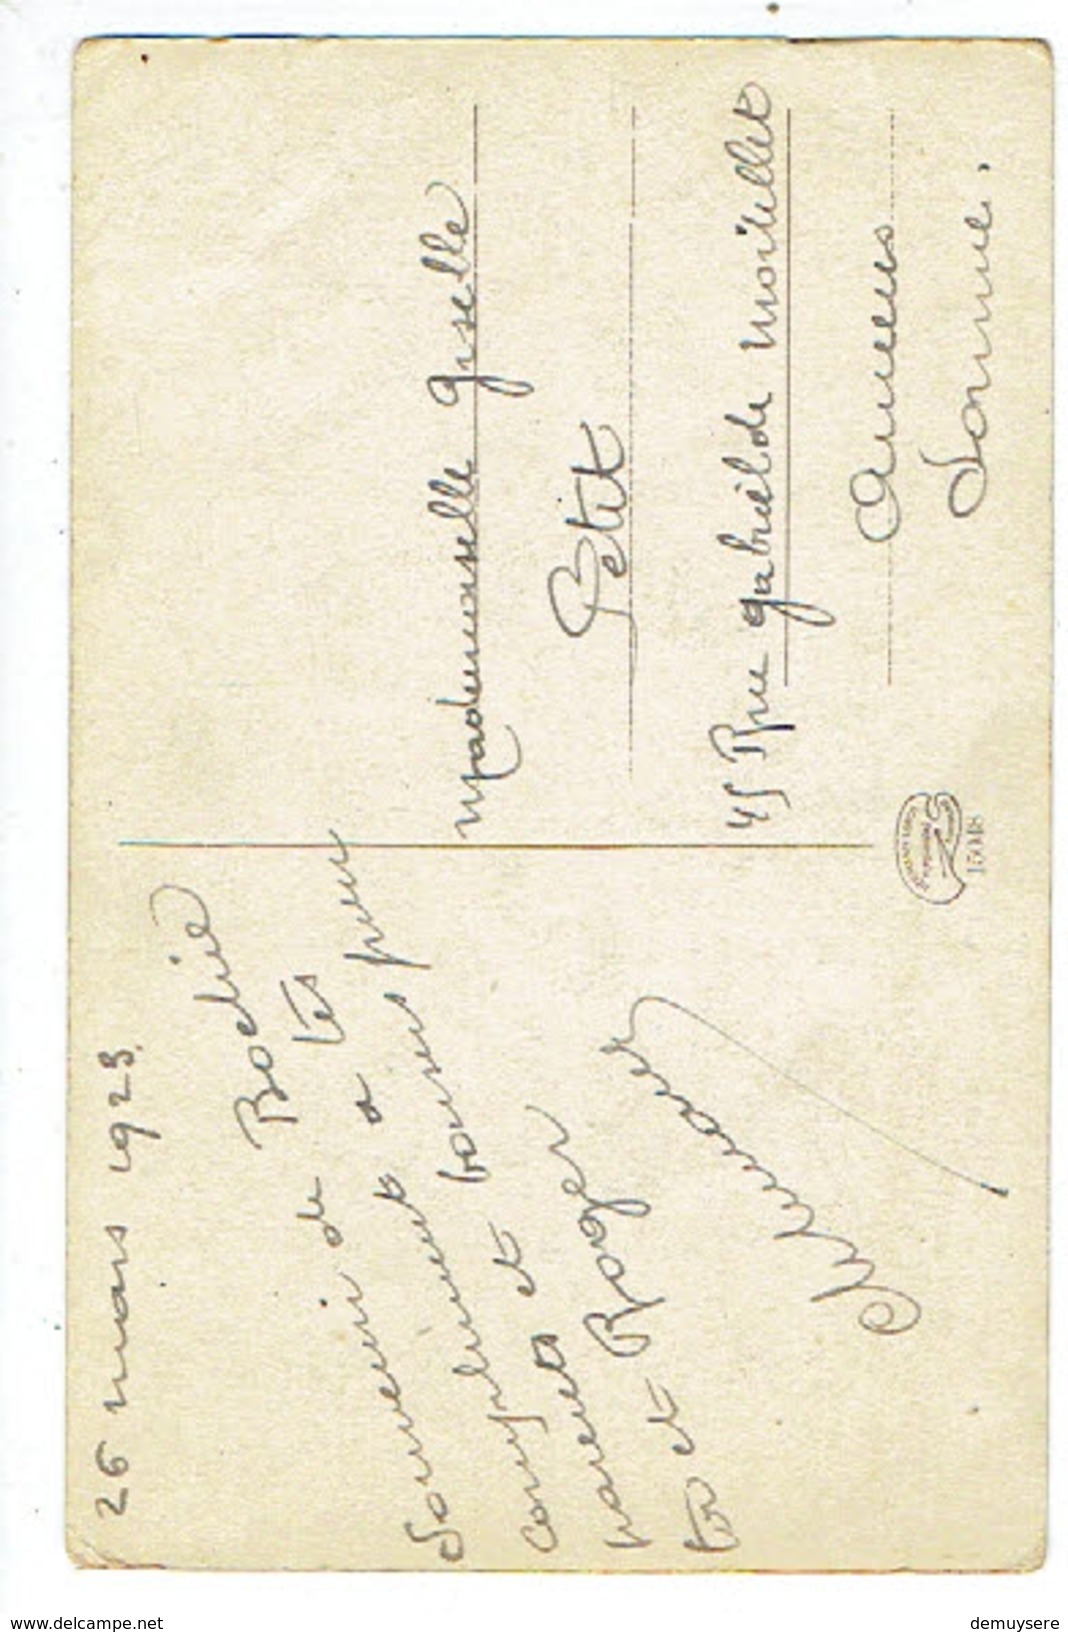 26 mars 1923.
Bochie
Souvenir de tes
compliments a
et bonnes
parents et
toi et Roger
Mademoiselle giselle
Petit
45 Rue gabriel de mortillet
amiens
Somme.
15048
www.delcampe.net
demuysere